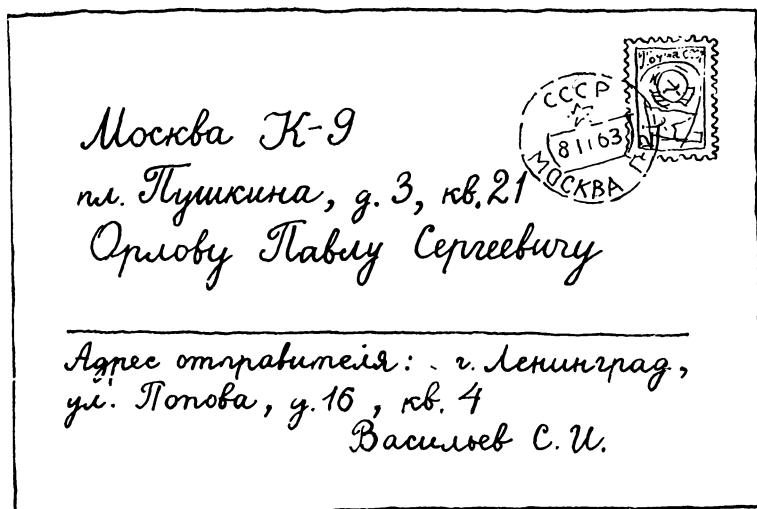 Москва К-9
пл. Пушкина, д. 3, кв. 21
Орлову Павлу Сергеевичу
СССР
8 II 63
МОСКВА
Адрес отправителя: г. Ленинград,
ул. Попова, д. 16, кв. 4
Васильев С. И.